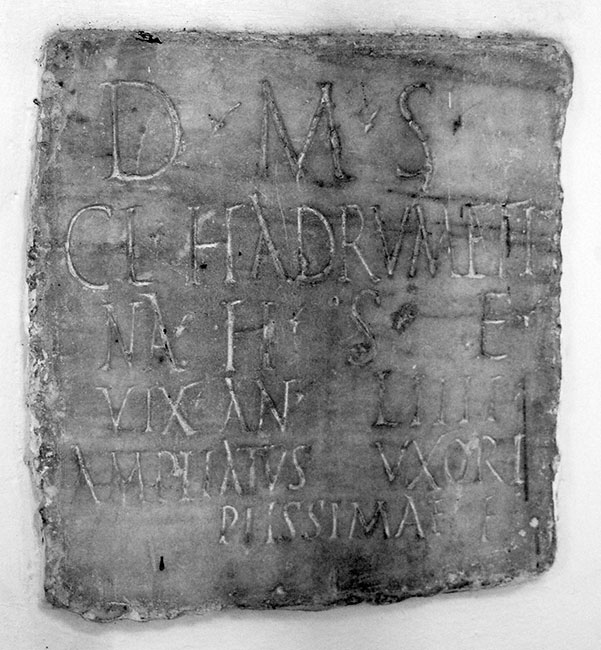 D · M · S ·
CL · HADRVMETI
NA · H · S · E ·
VIX · AN · LIIII
AMPLIATVS VXORI
PIISSIMAE F